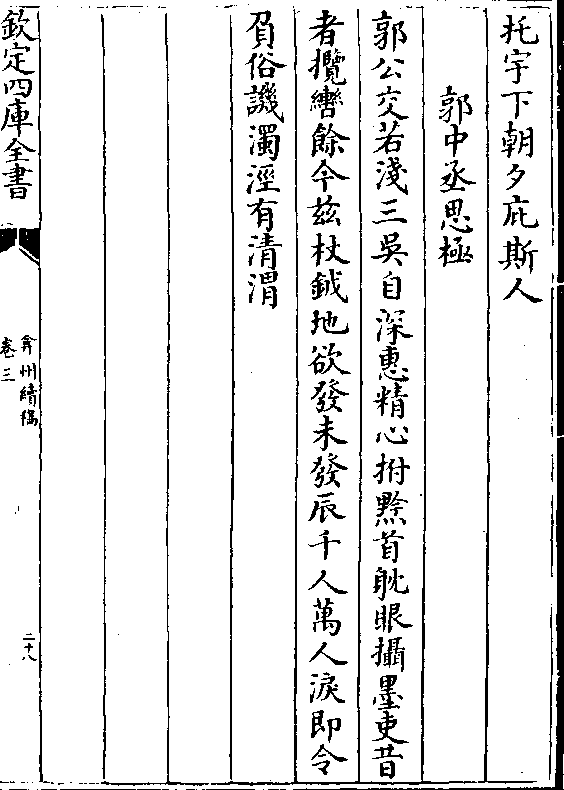 托宇下朝夕庇斯人
郭中丞思極
郭公交若淺三吳自深惠精心拊黔首眈眼攝墨吏昔
者攬轡餘今茲杖鉞地欲發未發辰千人萬人淚即令
負俗譏濁涇有清渭
欽定四庫全書
弇州續稿
卷三
二十八